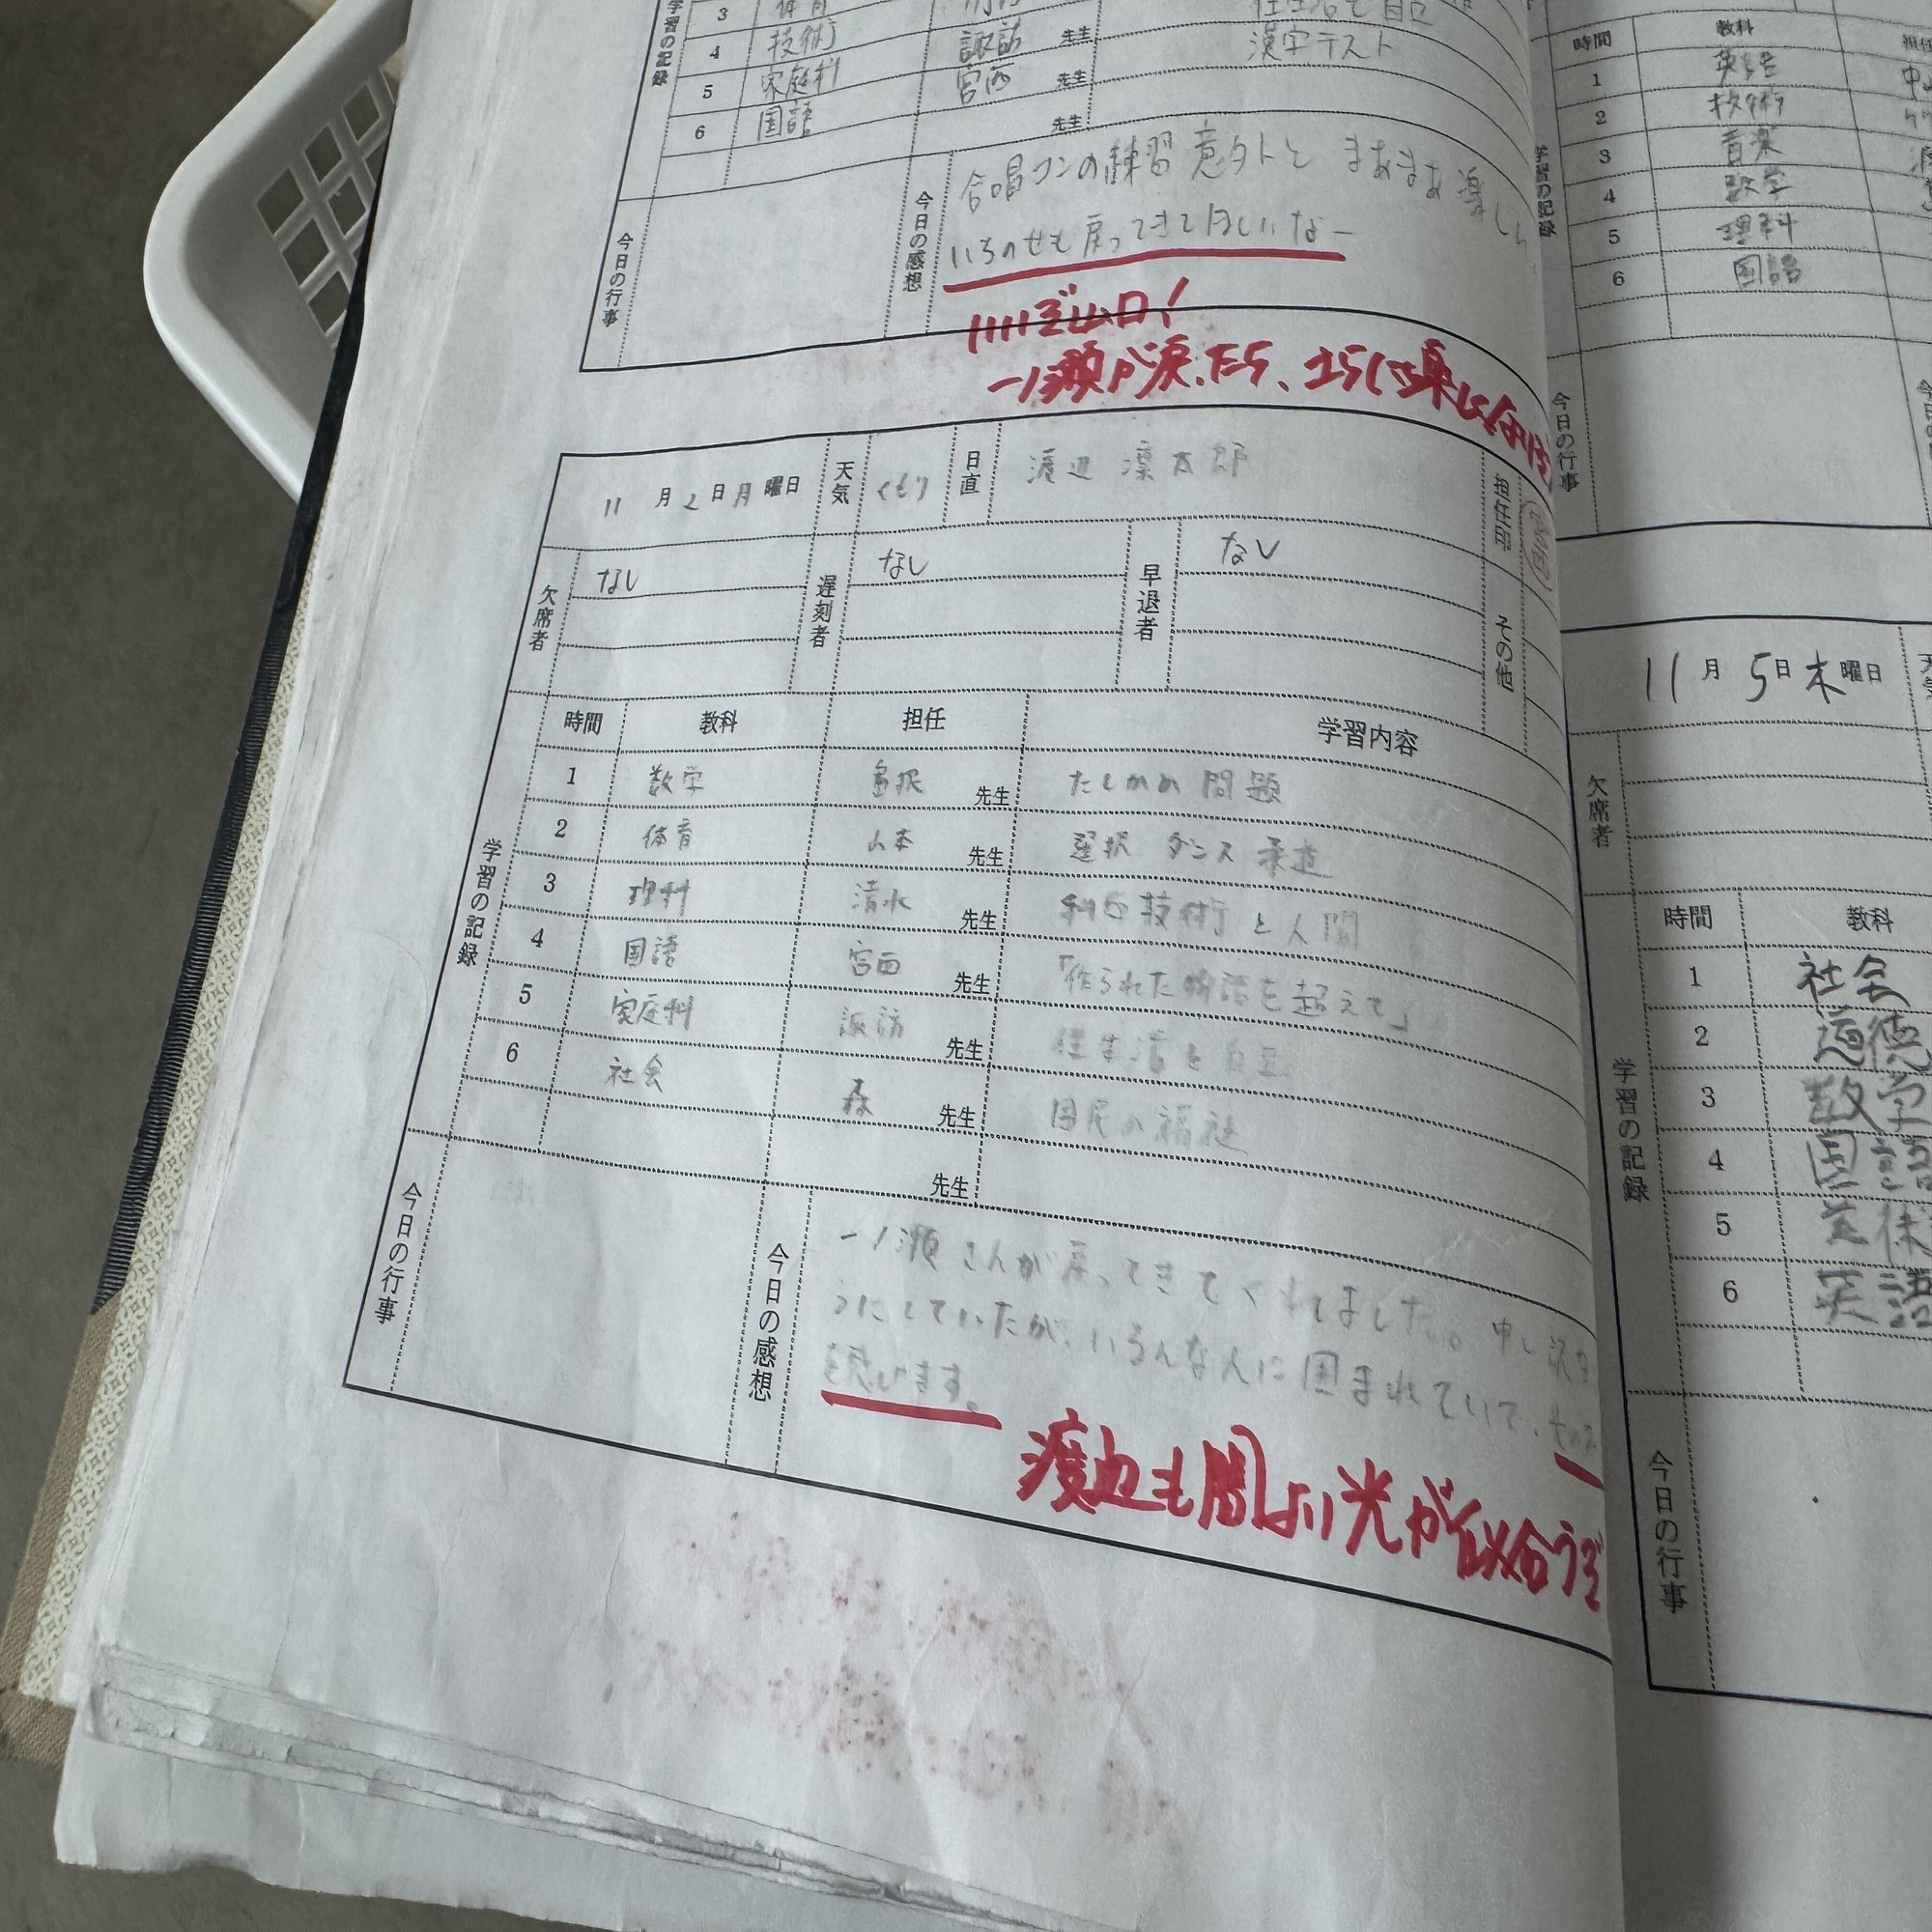 学習の記録
3 体育
4 技術 諏訪 先生 漢字テスト
5 家庭科 宮西 先生
6 国語 先生
今日の行事
今日の感想
合唱コンの練習意外とまあまあ楽し
いちのせも戻ってきてほしいなー
いいぞ山口!
一ノ瀬が戻ったら、さらに楽しくなる
11月2日月曜日 天気 くもり 日直 渡辺 凛太郎 担任印
欠席者 なし 遅刻者 なし 早退者 なし その他
学習の記録
時間 教科 担任 学習内容
1 数学 先生 たしかめ問題
2 体育 山本 先生 選択 ダンス 柔道
3 理科 清水 先生 科学技術と人間
4 国語 宮西 先生 「作られた物語を超えて」
5 家庭科 諏訪 先生 住生活と自立
6 社会 森 先生 国民の福祉
先生
今日の行事
今日の感想
一ノ瀬さんが戻ってきてくれました。申し訳な
うにしていたが、いろんな人に囲まれていて、
を感じます。
渡辺も闇より光が似合うぞ
時間 教科
学習の記録
1 英語
2 技術
3 音楽
4 数学
5 理科
6 国語
今日の行事
11月5日木曜日
欠席者
学習の記録
時間 教科
1 社会
2 道徳
3 数学
4 国語
5
6 英語
今日の行事